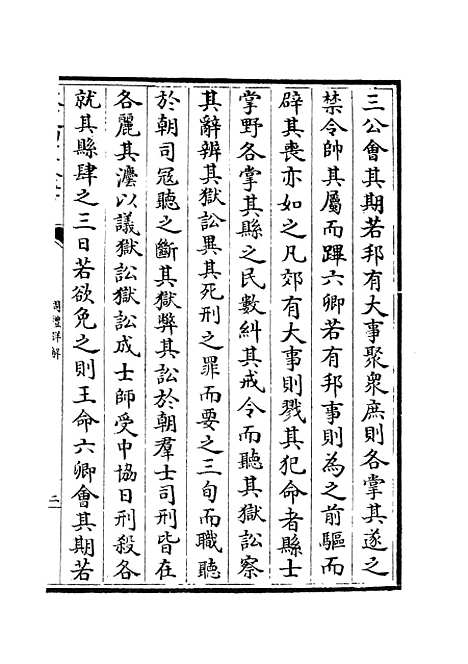 三公會其期若邦有大事聚衆庶則各掌其遂之
禁令帥其屬而蹕六卿若有邦事則為之前驅而
辟其喪亦如之凡郊有大事則戮其犯命者縣士
掌野各掌其縣之民數糾其戒令而聽其獄訟察
其辭辨其獄訟異其死刑之罪而要之三旬而職聽
於朝司寇聽之斷其獄弊其訟於朝羣士司刑皆在
各麗其灋以議獄訟獄訟成士師受中協日刑殺各
就其縣肆之三日若欲免之則王命六卿會其期若
周禮詳解
二